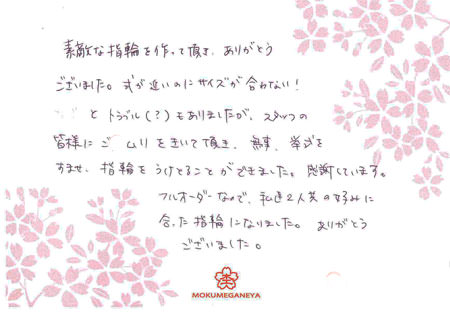 素敵な指輪を作って頂き、ありがとう
ございました。式が近いのにサイズが合わない!
とトラブル(?)もありましたが、スタッフの
皆様にご ムリをきいて頂き、無事、挙式を
すませ、指輪をうけとることができました。感謝しています。
フルオーダーなので、私達2人共の好みに
合った指輪になりました。ありがとう
ございました。
MOKUMEGANEYA